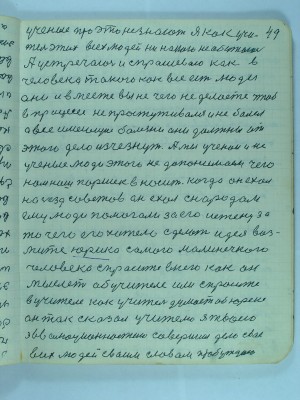 ученые про это не знают Я как учи- 49
тел этих всех людей ни на кого не обижаюсь
А устречаюсь и спрашеваю как в
человека такого как все ест людей
они и вместе вы не чего не делаете чтоб
в процессе не простуживался и не болел
а все имеющие болезни они должны от
этого дела изчезнут. А мы ученые и не
ученые люди этого не допонимаем чего
нам наш паршек в носит. когда он ехал
на сезд советов он ехал с народам
ему люди помогали за его истену за
то чего его хотели сделат идея воз-
мите юрико самого малинечкого
человека спросите в него как он
мыслет об учителе или спросите
в учителе как учител думает об юрене
он так сказал учителю я твоего
я в эмоцыональностию совершим дело свае
всих людей своим словам пробуждаю